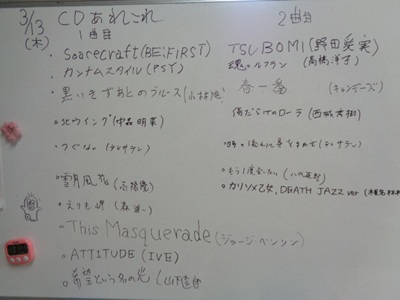 3/13
(木)
CDあれこれ
1曲目
2曲目
・SpaceCraft(BE:FIRST)
TSUBOMI(野田愛実)
・カンナムスタイル(PSY)
魂のルフラン(高橋洋子)
・黒いきずあとのブルース(小林旭)
春一番(キャンディーズ)
傷だらけのローラ(西城秀樹)
・北ウイング(中森明菜)
・つぐない(テレサテン)
時の流れに身をまかせ(テレサテン)
・雪月風花
もう1度会いたい(八代亜紀)
・えりも岬(森進一)
・カリソメ乙女, DEATH JAZZ ver
・This Masquerade(ジョージ・ベンソン)
・ATTITUDE(IVE)
・希望という名の光(山下達郎)